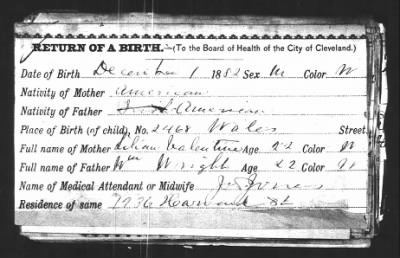 RETURN OF A BIRTH.—(To the Board of Health of the City of Cleveland.)
Date of Birth December 1 1882 Sex M Color W
Nativity of Mother American
Nativity of Father American
Place of Birth (of child), No. 2468 Wales Street
Full name of Mother Lilian Valentine Age 22 Color W
Full name of Father Wm Wright Age 22 Color W
Name of Medical Attendant or Midwife
Residence of same 7936 St